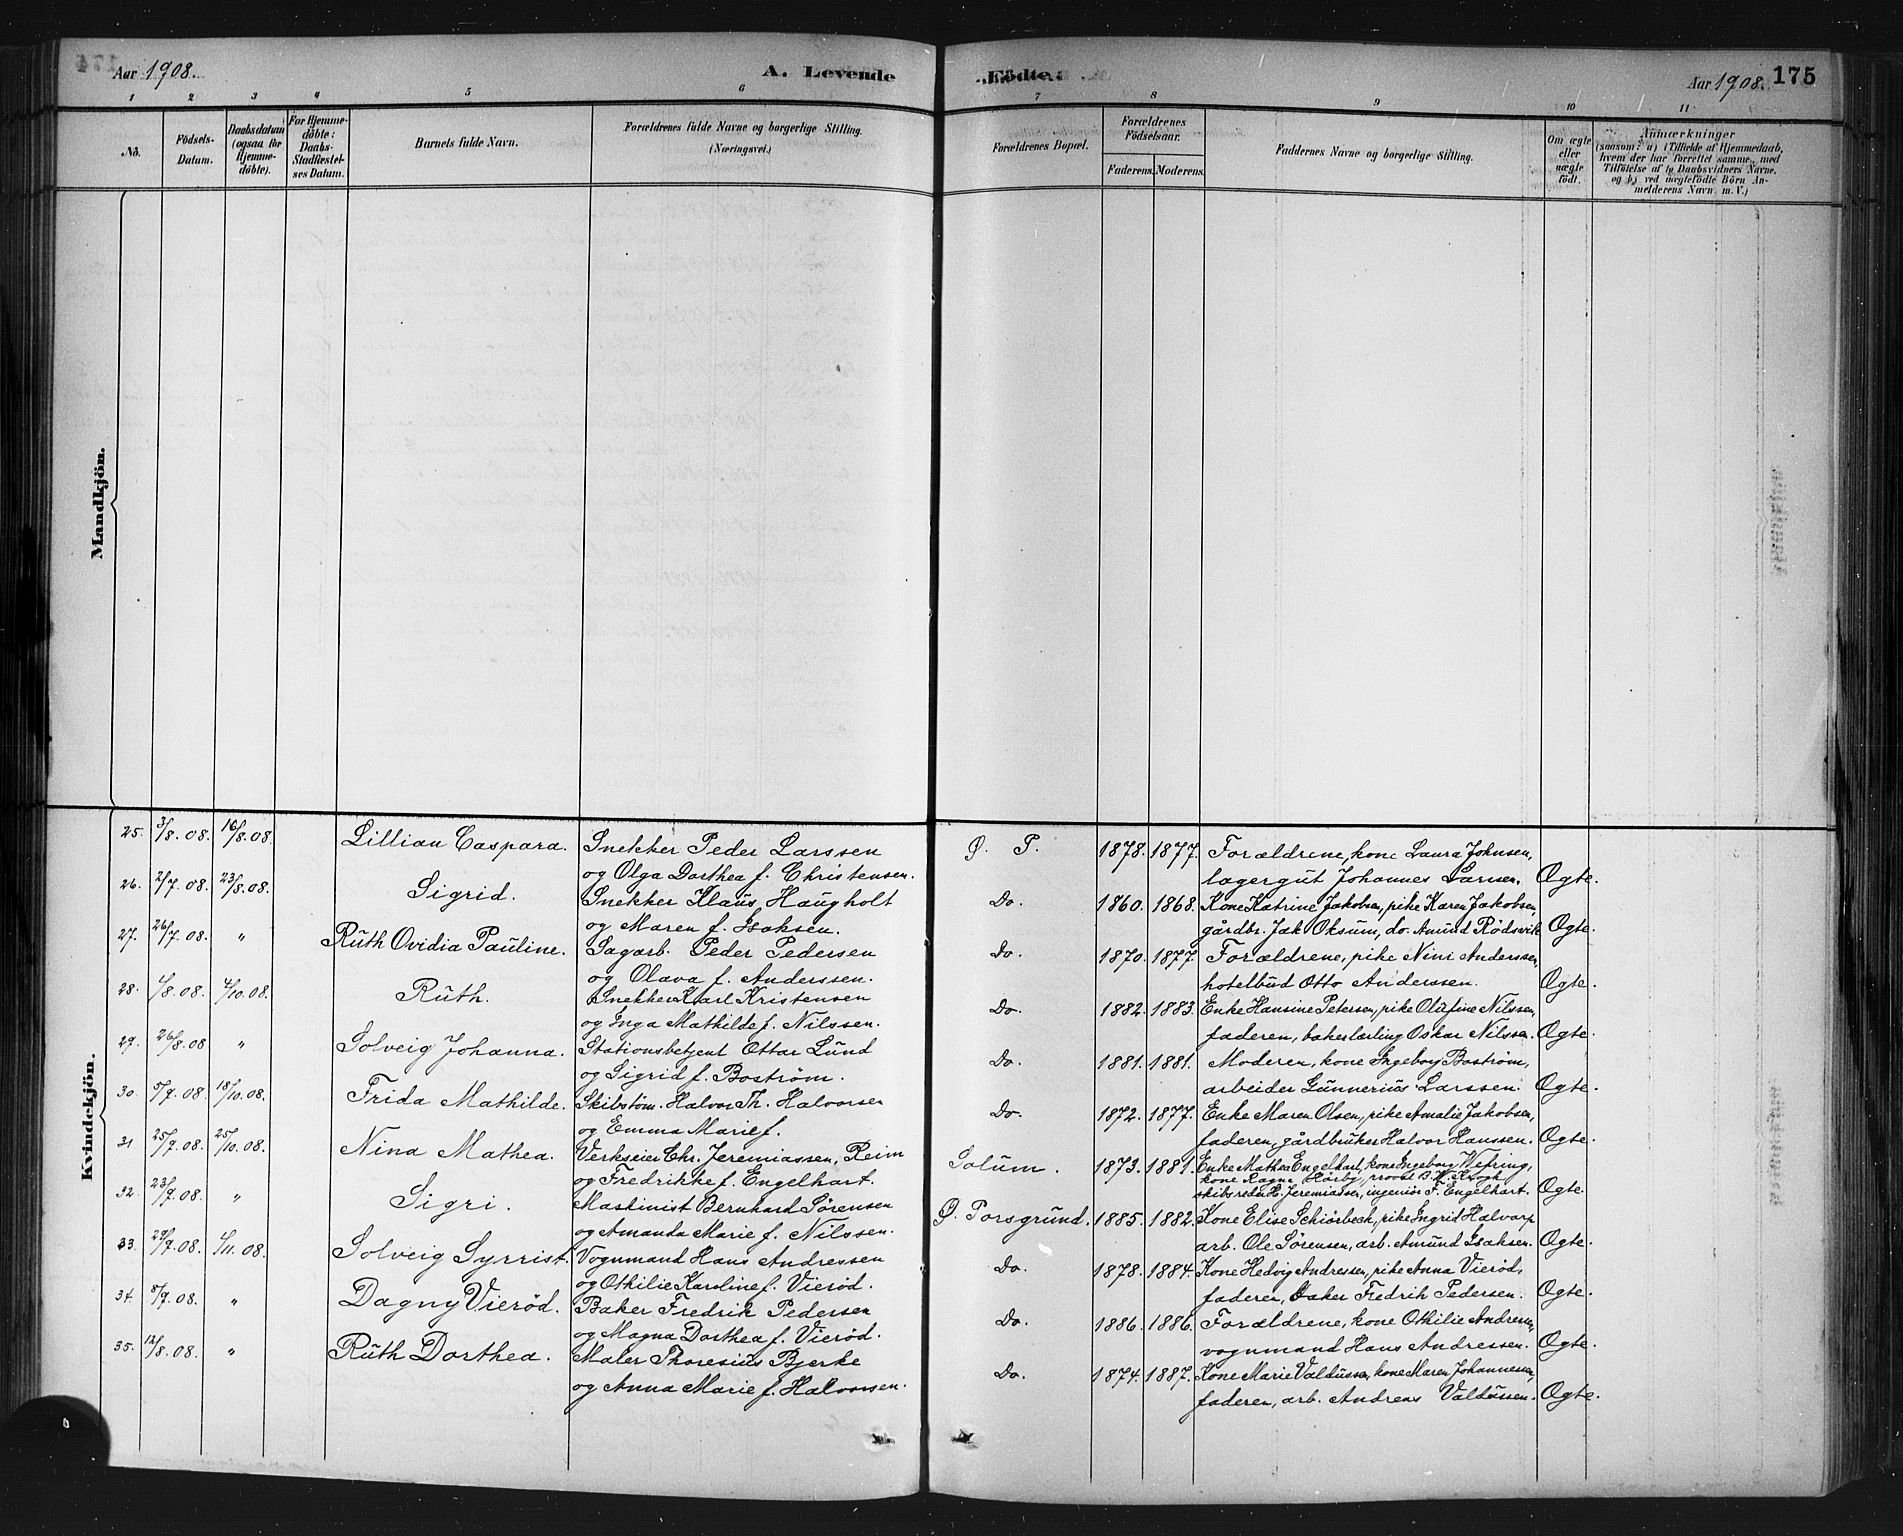 Aar 1908.
A. Levende
Födte.
Aar 1908. 175
1 2 3 4 5 6 7 8 9 10 11
No.
Födsels-
Datum.
Daabsdatum
(ogsaa for
Hjemme-
döbte).
For Hjemme-
döbte:
Daabs-
Stadfæstel-
ses Datum.
Barnets fulde Navn.
Forældrenes fulde Navne og borgerlige Stilling.
(Næringsvei.)
Forældrenes Bopæl.
Forældrenes
Födselsaar.
Faderens. Moderens.
Faddernes Navne og borgerlige Stilling.
Om ægte
eller
uægte
födt.
Anmærkninger
(saasom: a) i Tilfælde af Hjemmedaab,
hvem der har forrettet samme, med
Tilföielse af to Daabsvidners Navne.
og b) ved uægtefödte Börn An-
melderens Navn m. V.)
Mandkjön.
Kvindekjön.
25. 3/8. 08. 16/8. 08. Lillian Caspara. Snekker Peder Larssen Ø. P. 1878. 1877. Forældrene, kone Laura Johnsen,
og Olga Dorthea f. Christensen. lagergut Johannes Larsen. Ægte.
26. 2/7. 08. 23/8. 08. Sigrid. Snekker Klaus Haugholt Do. 1860. 1868. Kone Katrine Jakobsen, pike Karen Jakobsen,
og Maren f. Isaksen. gårdbr. Jak Oksum, do. Amund Rödsvik Ægte.
27. 26/7. 08. " Ruth Ovidia Pauline. Sagarb. Peder Pedersen Do. 1870. 1877. Forældrene, pike Nini Andersen,
og Olava f. Anderssen. hotelbud Otto Anderssen. Ægte.
28. 4/8. 08. 4/10. 08. Ruth. Snekker Karl Kristensen Do. 1882. 1883. Enke Hansine Petersen, pike Olafine Nilssen,
og Inga Mathilde f. Nilssen. faderen, bakerlærling Oskar Nilssen. Ægte.
29. 26/8. 08 " Solveig Johanna. Stationsbetjent Ottar Lund Do. 1881. 1881. Moderen, kone Ingeborg Boström,
og Sigrid f. Boström. arbeider Gunnerius Larssen. Ægte.
30. 5/9. 08. 18/10. 08. Frida Mathilde. Skibstöm. Halvor Th. Halvorsen Do. 1872. 1877. Enke Maren Olsen, pike Amalie Jakobsen,
og Emma Marie f. faderen, gårdbruker Halvor Hanssen. Ægte.
31 25/9. 08. 25/10. 08. Nina Mathea. Verkseier Chr. Jeremiassen, Reim Solum. 1873. 1881. Enke Mathea Engelhart, kone Ingeborg Wefring,
og Fredrikke f. Engelhart. kone Ragna Hörby, provst B. W. Krogh,
skibsreder H. Jeremiassen, ingeniör F. Engelhart. Ægte.
32. 23/9. 08. " Sigri. Maskinist Bernhard Sørensen Ø. Porsgrund. 1885. 1882. Kone Elise Schiörbeck, pike Ingrid Halvors
og Amanda Marie f. Nilssen. arb. Ole Sørensen, arb. Amund Isaksen. Ægte.
33. 29/9. 08. 1/11. 08. Solveig Syrrist. Vognmand Hans Andressen Do. 1878. 1884. Kone Hedvig Andressen, pike Anna Vieröd,
og Othilie Karoline f. Vieröd. faderen, baker Fredrik Pedersen. Ægte.
34. 8/9. 08. " Dagny Vieröd. Baker Fredrik Pedersen Do. 1886. 1886. Forældrene, kone Othilie Andresen,
og Magna Dorthea f. Vieröd. vognmand Hans Andressen. Ægte.
35. 13/8. 08. " Ruth Dorthea. Maler Thoresius Bjerke Do. 1874. 1887. Kone Marie Valdussen, kone Maren Johannessen,
og Anna Marie f. Halvorsen. faderen, arb. Andreas Valdussen. Ægte.